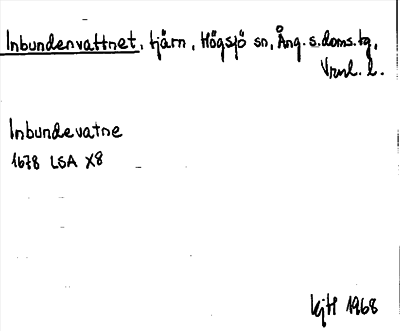 Inbundenvattnet, tjärn, Högsjö sn, Ång. s. doms. tg,
Vrml. l.
Inbundevatne
1678 LSA X8
KjH 1968